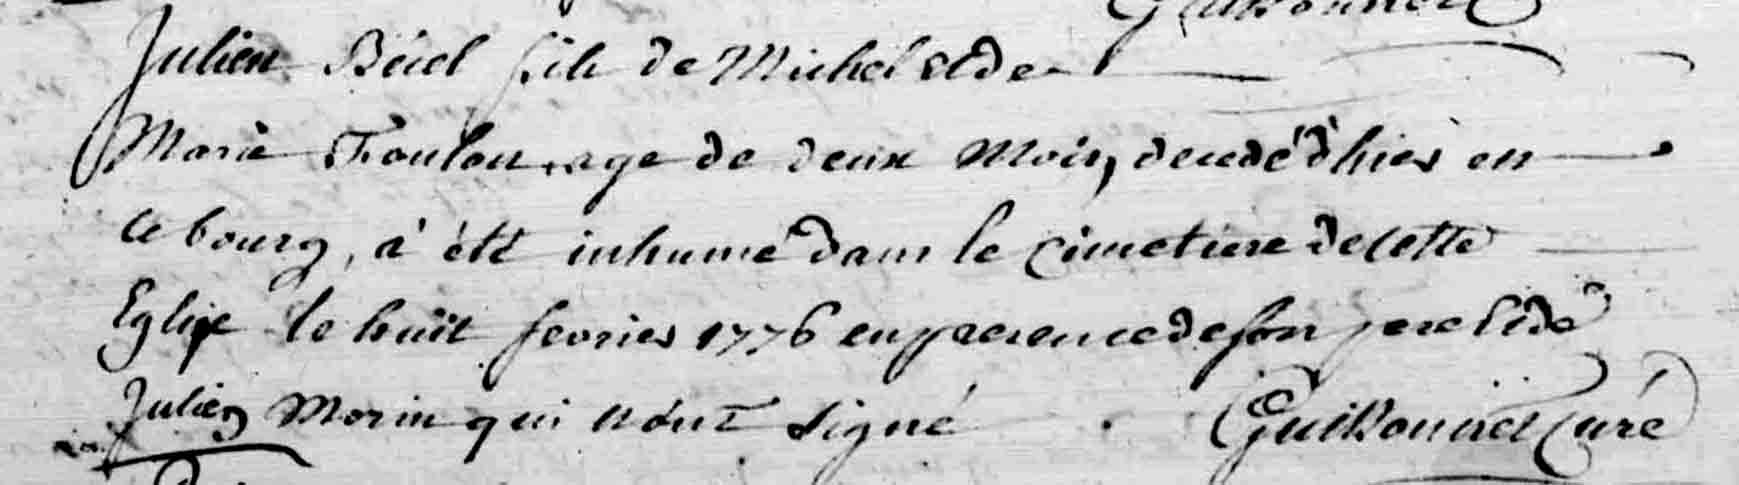 Julien Bériel fils de Michel et de
Marie Foulon, age de deux mois, decedé d'hier en
ce bourg, à été inhumé dans le cimetiere de cette
Eglise le huit fevrier 1776 en presence de son pere et de
Julien Morin qui n'ont signé. Guibonnet Curé